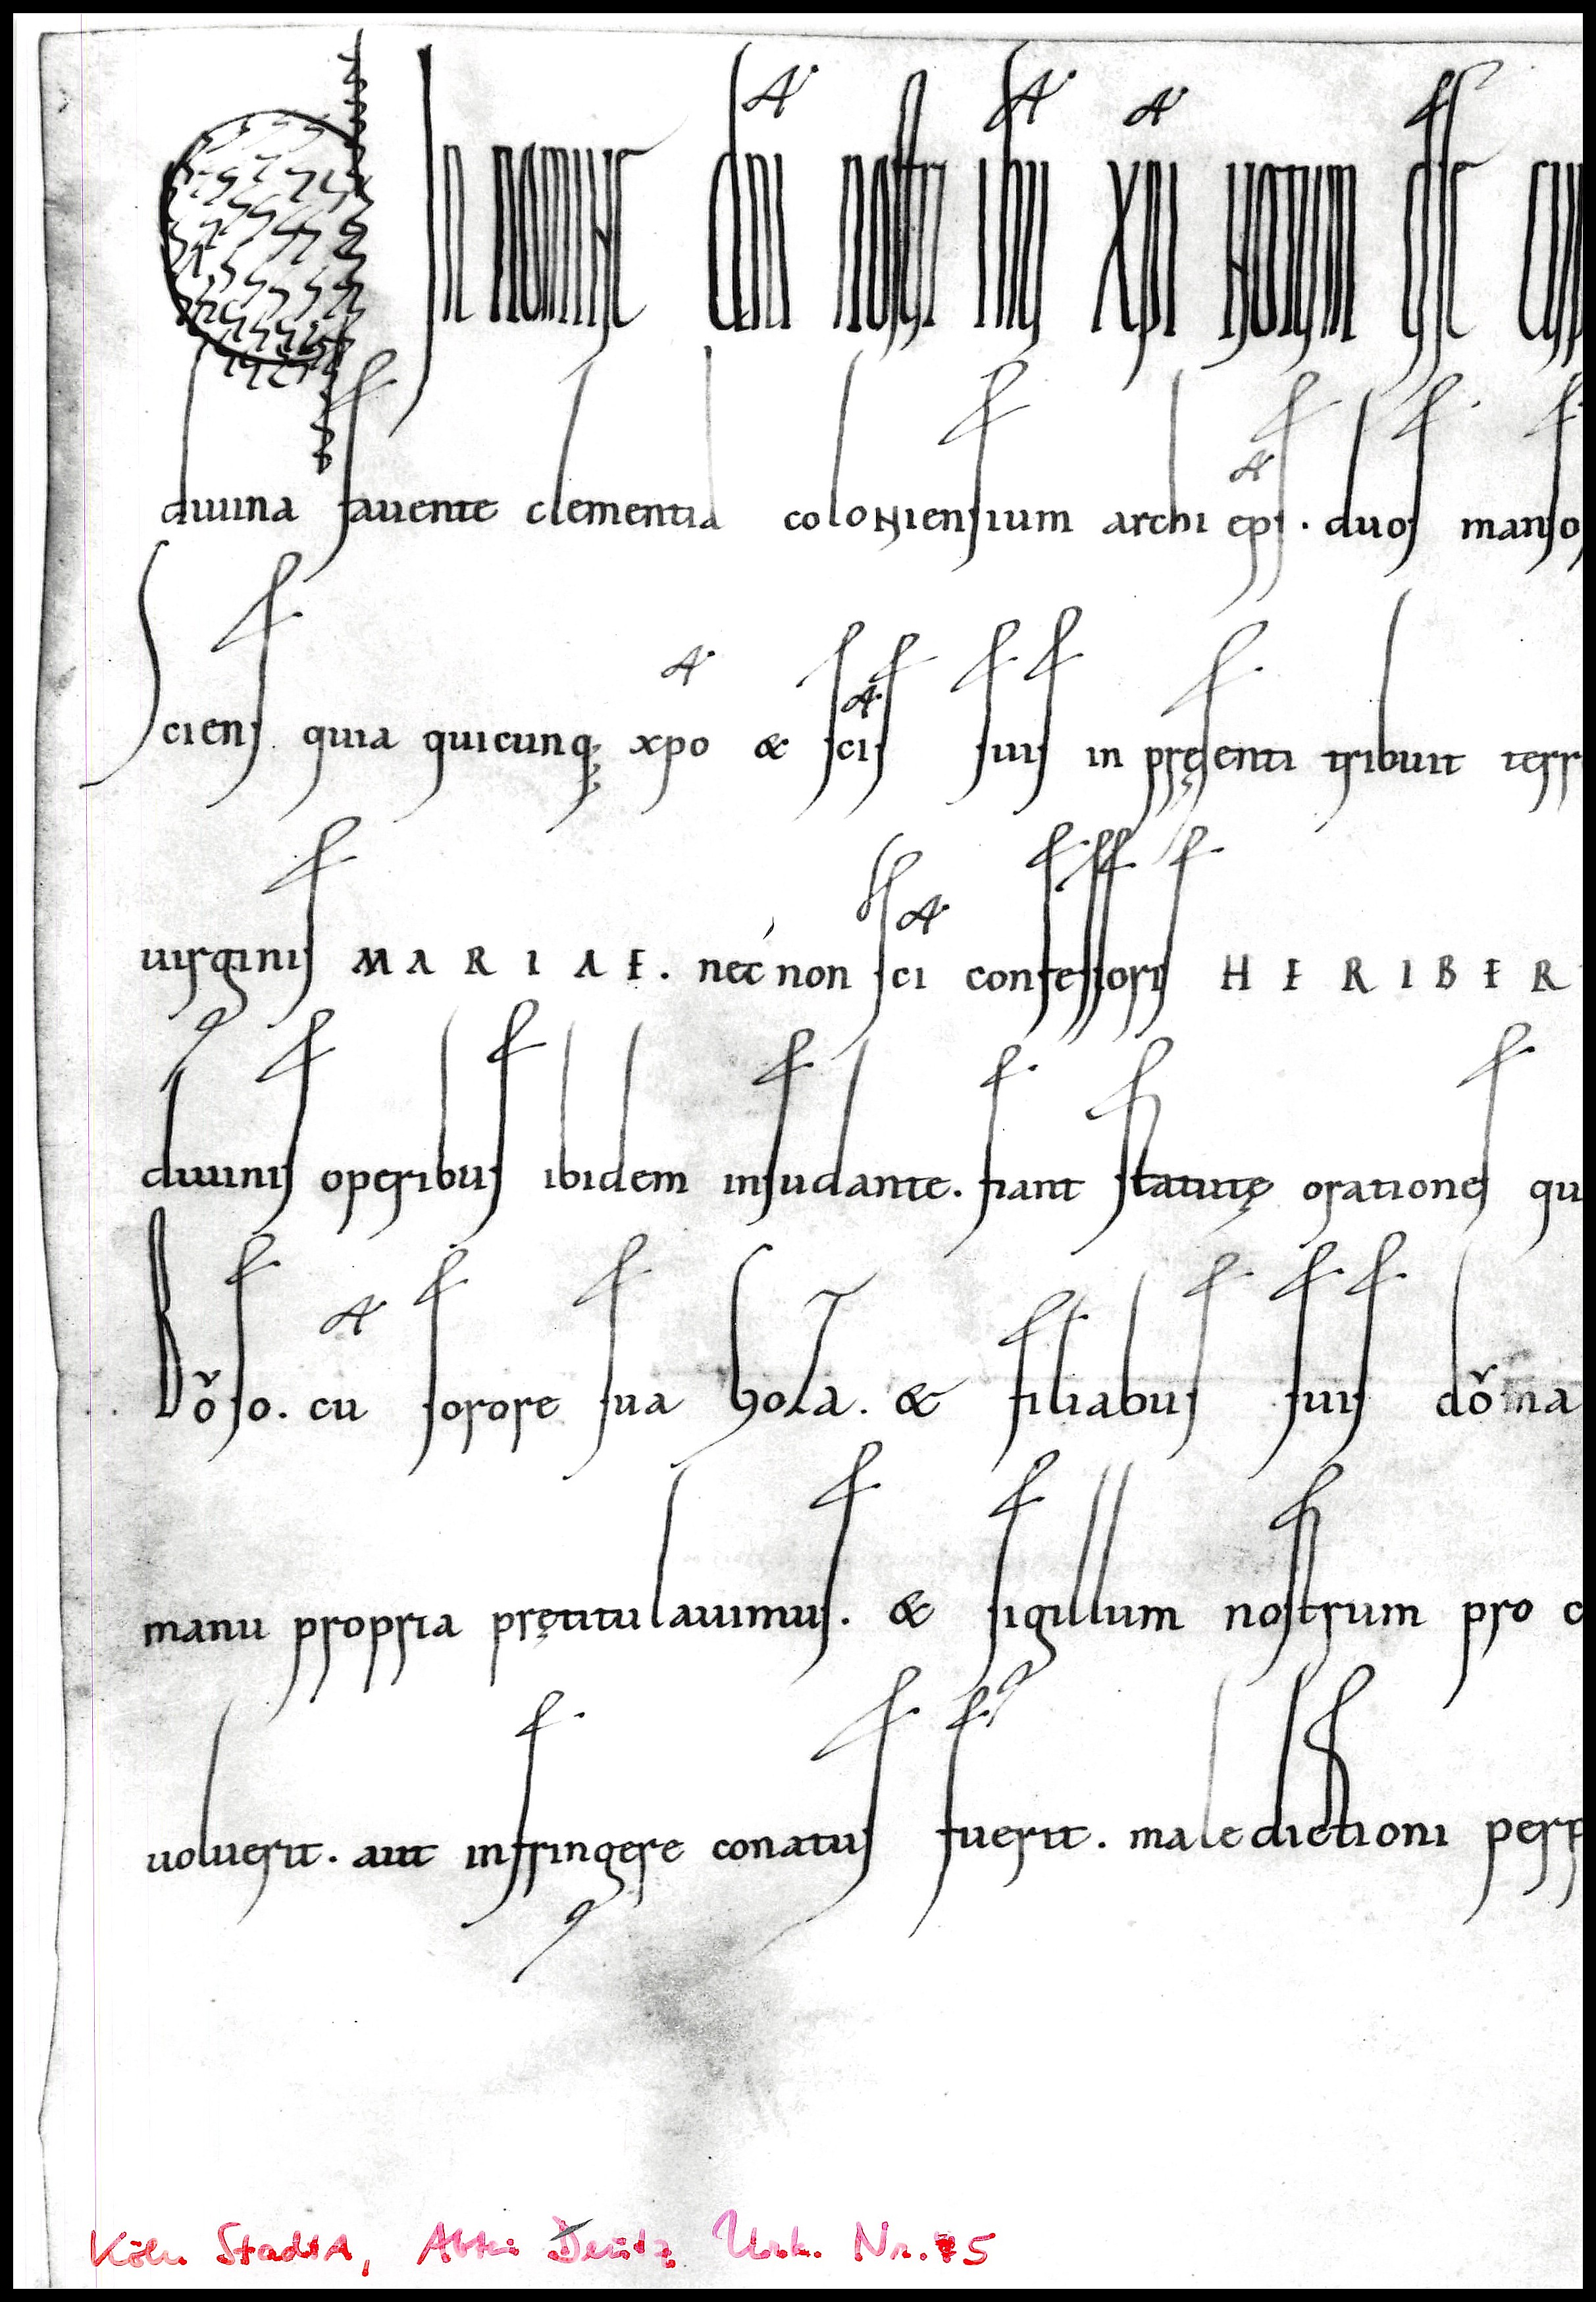 In nomine dni nostri ihu xpi notum esse cup
diuina fauente clementia coloniensium archi eps. duos manso
Sciens quia quicunq; xpo & scis suis in pręsenti tribuit terr
uirginis MARIAE. nec non sci confessoris HERIBER
diuinis operibus ibidem insudante. fiant statutę orationes qu
Bo͛so. cu sorore sua hoza. & filiabus suis do͛ma
manu propria prętitulauimus. & sigillum nostrum pro c
uoluerit. aut infringere conatus fuerit. maledictioni perp
Köln StadtA, Abtei Deutz Urk. Nr. 5